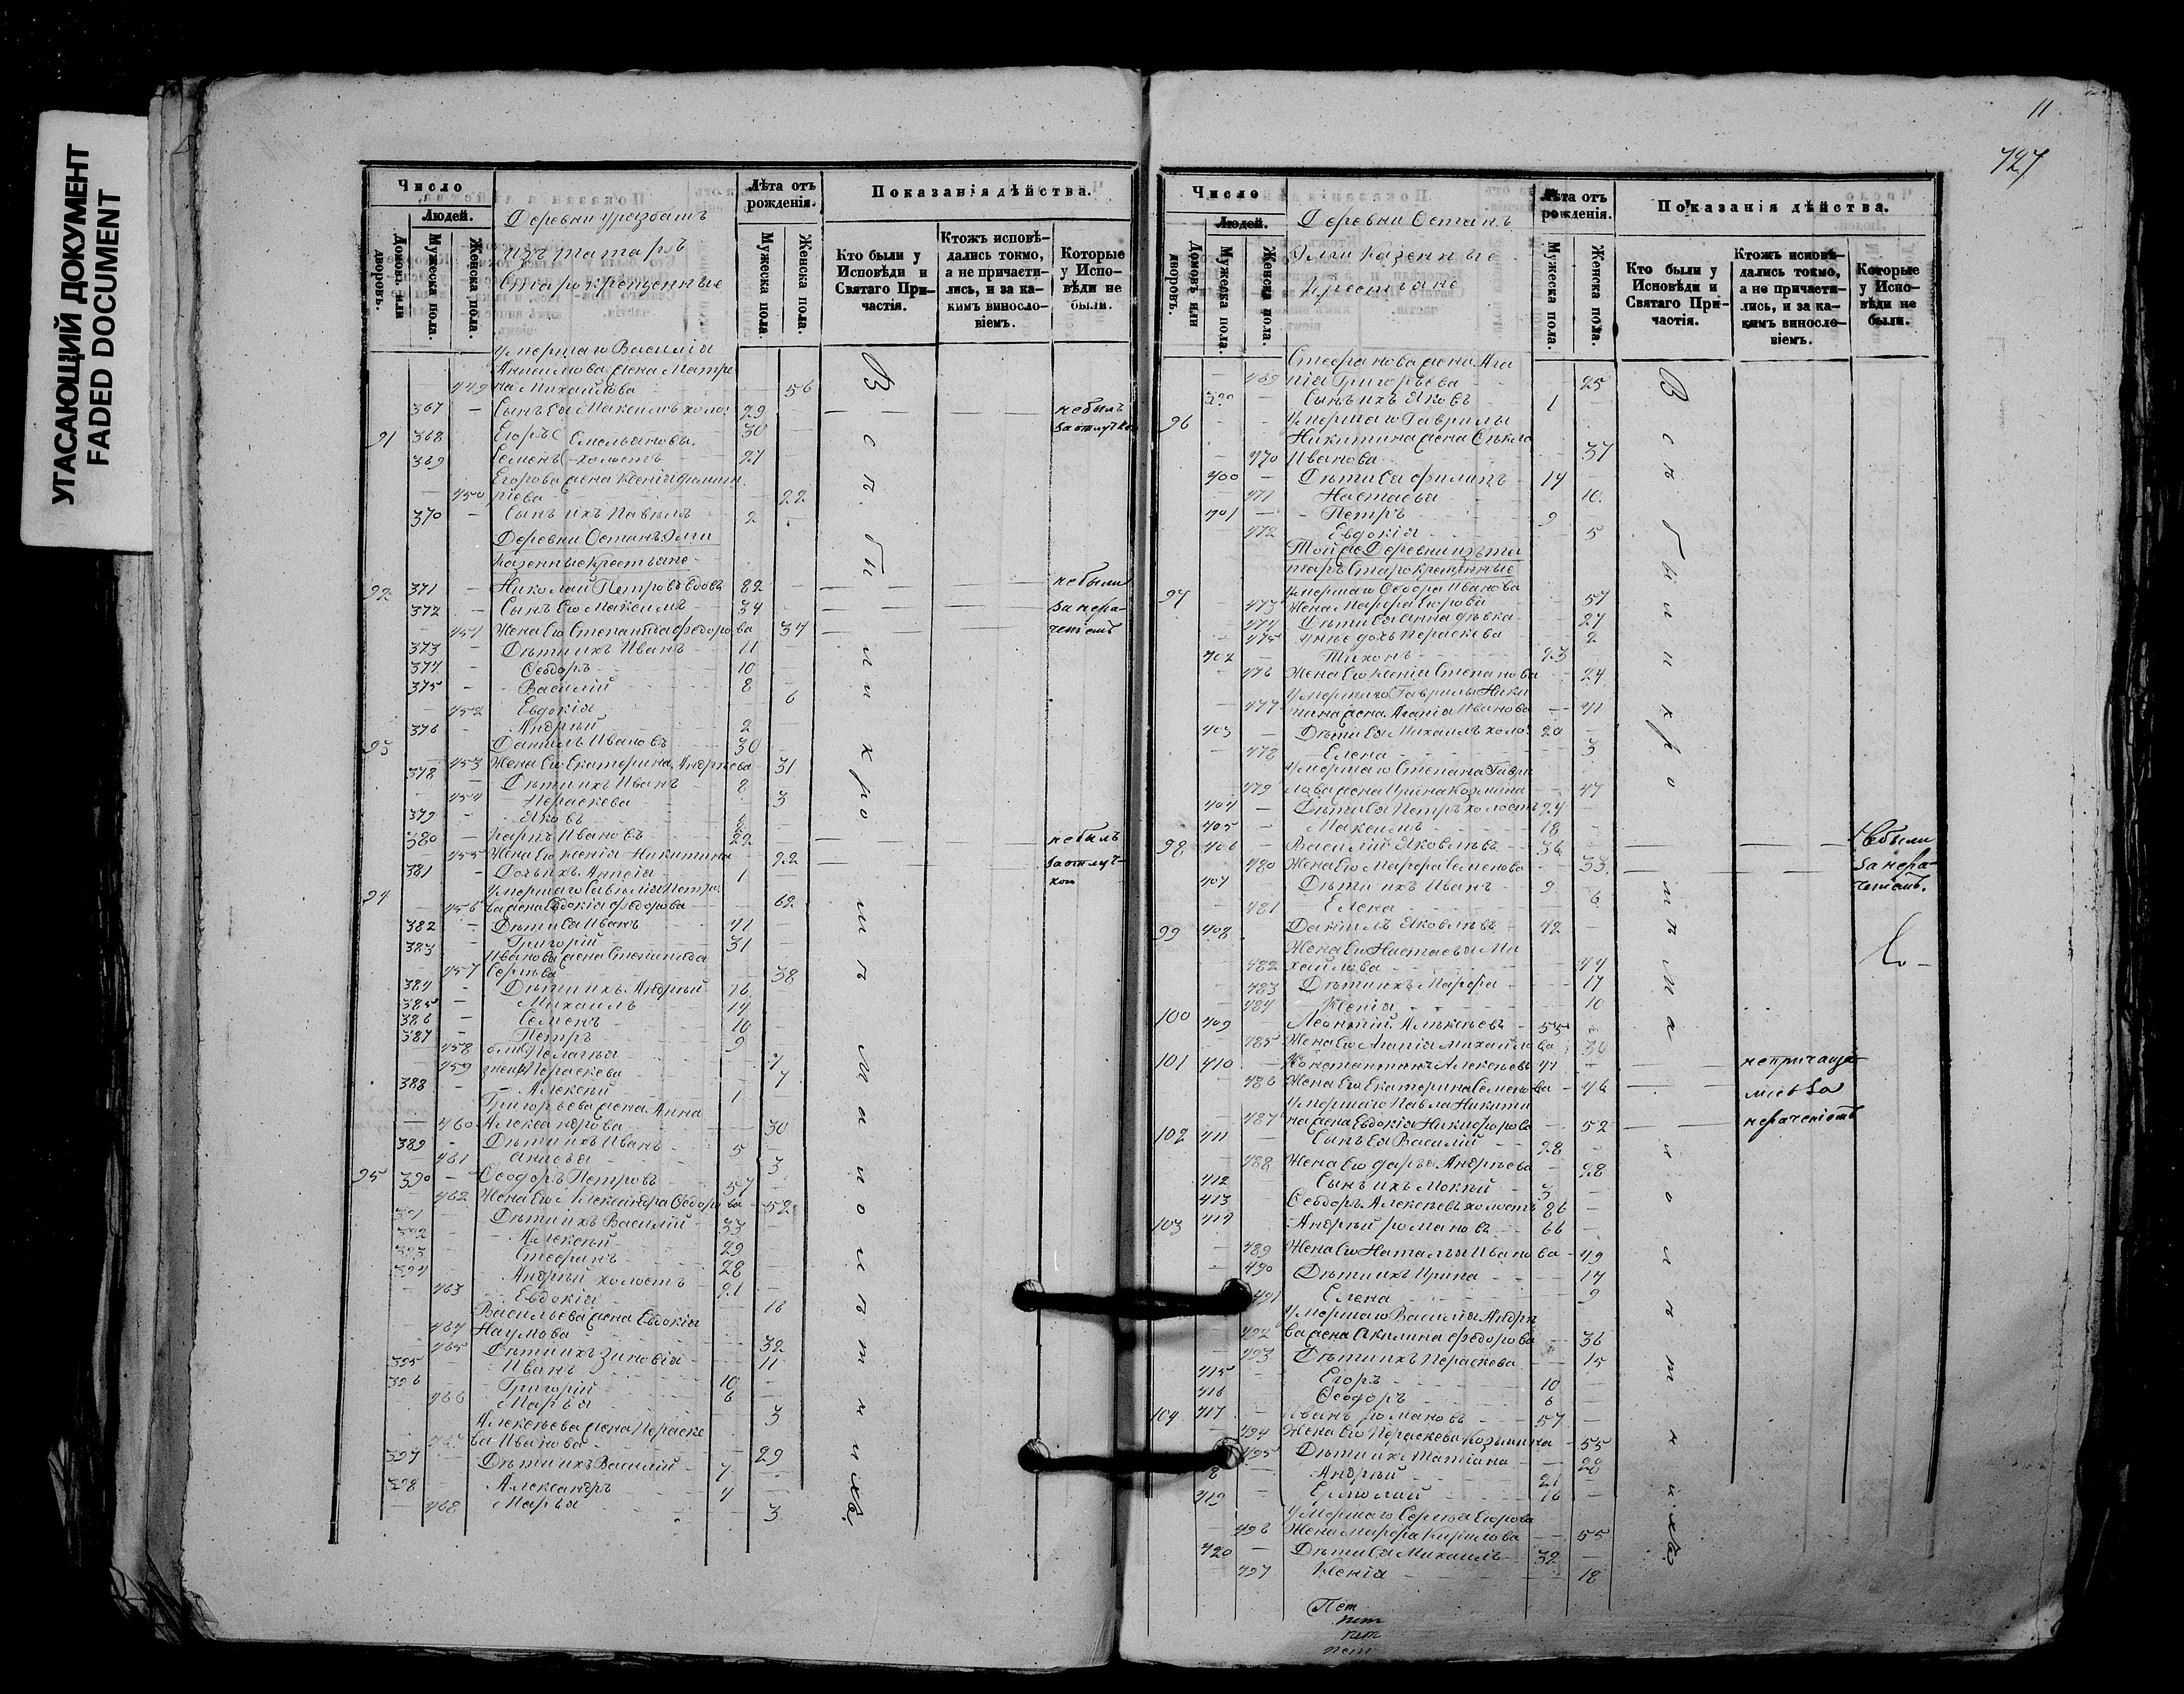 УГАСАЮЩИЙ ДОКУМЕНТ
FADED DOCUMENT
Число
Людей.
Домовъ или дворовъ.
Мужеска пола.
Женска пола.
Деревни
изъ татаръ
Старокрещенные
Лѣта отъ рожденія.
Мужеска пола.
Женска пола.
Показанія дѣйства.
Кто были у Исповѣди и Святаго Причастія.
Ктожъ исповѣдались токмо, а не причастились, и за какимъ винословіемъ.
Которые у Исповѣди не были.
умершаго Василія
жена Матре
449 на Михайлова 56
367 Сынъ Ея Максимъ холо: 29 небылъ
91 368 Егоръ Емельяновы 30 за отлучкою
369 Семенъ холостъ 27
Егорова жена Ксенія
450 22
370 Сынъ ихъ Павелъ 2
Деревни Останъ Элги
Казенные Крестьяне
92 371 Николай Петровъ вдовъ 82 небыли
372 Сынъ Его Максимъ 34 за нера-
451 Жена Его Степанида Федорова 34 ченіемъ
373 Дѣти ихъ Иванъ 11
374 Ѳеодоръ 10
375 Василій 8
452 Евдокія 6
376 Андрей 2
93 Даніилъ Ивановъ 30
453 Жена Его Екатерина Андреева 31
378 Дѣти ихъ Иванъ 8
454 Пераскева 3
379 Яковъ
380 Карпъ Ивановъ 22 небылъ
455 Жена Его Ксенія Никитина 22 за отлуч-
381 Дочь ихъ 1 кою
94 умершаго Савелія Петро
456 ва жена Евдокія Федорова 62
382 Дѣти Ея Иванъ 41
383 Григорій 31
Иванова жена Степанида
457 Сергѣева 38
384 Дѣти ихъ Андрей 16
385 Михаилъ 14
386 Семенъ 10
387 Петръ 9
458 Пелагѣя 7
459 Пераскева 7
388 Алексѣй 1
Григорьева жена Анна
460 Александрова 30
389 Дѣти ихъ Иванъ 5
461 3
95 390 Ѳеодоръ Петровъ 57
462 Жена Его Александра Ѳедорова 52
391 Дѣти ихъ Василій 33
392 Алексѣй 29
393 Стефанъ 28
394 Андрей холостъ 21
463 Евдокія 16
Васильева жена Евдокія
464 Наумова 32
465 Дѣти ихъ Зиновія 11
395 Иванъ 10
396 Григорій 6
466 Марья 3
Алексѣева жена Пераске
ва Иванова 29
397 Дѣти ихъ Василій 7
398 Александръ 4
468 Марья 3
Всѣ были крот
11
727
Число
Людей.
Домовъ или дворовъ.
Мужеска пола.
Женска пола.
Деревни Останъ
Элги Казенные
Крестьяне
Лѣта отъ рожденія.
Мужеска пола.
Женска пола.
Показанія дѣйства.
Кто были у Исповѣди и Святаго Причастія.
Ктожъ исповѣдались токмо, а не причастились, и за какимъ винословіемъ.
Которые у Исповѣди не были.
Стефанова жена Ага
469 пія Григорьева 25
399 Сынъ ихъ Яковъ 1
96 умершаго Гаврилы
Никитина жена Ѳекла
470 Иванова 37
400 Дѣти Ея Филипъ 14
471 Настасья 10
401 Петръ 9
472 Евдокія 5
Той же Деревни изъ та
таръ Старокрещенные
97 умершаго Ѳедора Иванова
473 Жена Марфа Егорова 57
474 Дѣти Ея Анна дѣвка 27
475 Пераскева 2
402 Тихонъ 23
476 Жена Его Ксенія Степанова 24
умершаго Гаврилы Ники
477 тина жена Агапія Иванова 41
403 Дѣти Ея Михаилъ холо: 20
478 Елена 3
умершаго Степана Гаври
479 лова жена Ирина Козмина 47
404 Дѣти Ея Петръ холостъ 24
405 Максимъ 18
98 406 Василій Яковлевъ 36 Небыли
480 Жена Его Марфа Семенова 33 за нера-
407 Дѣти ихъ Иванъ 9 ченіемъ.
481 Елена 6
99 408 Даніилъ Яковлевъ 42
Жена Его Настасья Ми
482 хайлова 44
483 Дѣти ихъ Марфа 17
484 Ксенія 10
100 409 Леонтій Алексѣевъ 55
485 Жена Его Агапія Михайлова 30
101 410 Константинъ Алексѣевъ 41 непричаща
486 Жена Его Екатерина Семенова 46 лись за
умершаго Павла Никити
487 на жена Евдокія Никифорова 52 нераченіемъ
102 411 Сынъ Ея Василій 28
488 Жена Его Дарья Андреева 28
412 Сынъ ихъ Мокѣй 3
413 Ѳеодоръ Алексѣевъ холостъ 26
103 414 Андрей Романовъ 66
489 Жена Его Наталья Иванова 49
490 Дѣти ихъ Ирина 14
491 Елена 9
умершаго Василія Андре
492 ва жена Акилина Федорова 36
493 Дѣти ихъ Пераскева 15
415 Егоръ 10
416 Ѳеодоръ 6
104 417 Иванъ Романовъ 57
494 Жена Его Пераскева Козьмина 55
495 Дѣти ихъ Татіана 28
8 Андрей 21
419 Ермолай 16
умершаго Сергѣя Егорова
496 Жена Марфа Кирилова 55
420 Дѣти Ея Михаилъ 32
497 Ксенія 18
Всѣ были кро
Пет
пет
пет
пет